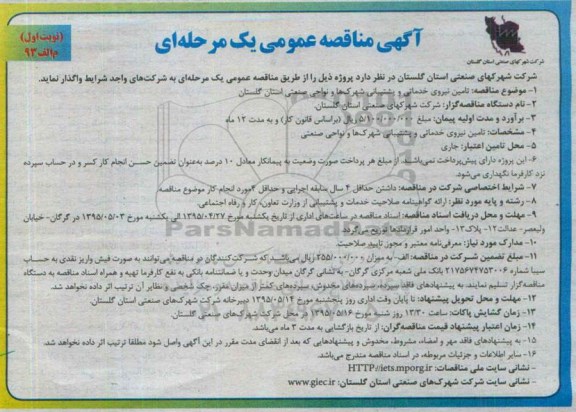 آگهی مناقصه عمومی یک مرحله‌ای
(نوبت اول)
م/الف ۹۳
شرکت شهرکهای صنعتی استان گلستان
شرکت شهرکهای صنعتی استان گلستان در نظر دارد پروژه ذیل را از طریق مناقصه عمومی یک مرحله‌ای به شرکت‌های واجد شرایط واگذار نماید.
۱- موضوع مناقصه: تامین نیروی خدماتی و پشتیبانی شهرک‌ها و نواحی صنعتی استان گلستان
۲- نام دستگاه مناقصه‌گزار: شرکت شهرکهای صنعتی استان گلستان
۳- برآورد و مدت اولیه پیمان: مبلغ ۵/۱۰۰/۰۰۰/۰۰۰ ریال (براساس قانون کار) و به مدت ۱۲ ماه
۴- مشخصات: تامین نیروی خدماتی و پشتیبانی شهرک‌ها و نواحی صنعتی
۵- محل تامین اعتبار: جاری
۶- این پروژه دارای پیش‌پرداخت نمی‌باشد. از مبلغ هر پرداخت صورت وضعیت به پیمانکار معادل ۱۰ درصد به‌عنوان تضمین حسن انجام کار کسر و در حساب سپرده
نزد کارفرما نگهداری می‌شود.
۷- شرایط اختصاصی شرکت در مناقصه: داشتن حداقل ۴ سال سابقه اجرایی و حداقل ۴ مورد انجام کار موضوع مناقصه
۸- رشته و پایه مورد نظر: ارائه گواهینامه صلاحیت خدمات و پشتیبانی از وزارت تعاون، کار و رفاه اجتماعی
۹- مهلت و محل دریافت اسناد مناقصه: اسناد مناقصه در ساعت‌های اداری از تاریخ یکشنبه مورخ ۱۳۹۵/۰۴/۲۷ الی یکشنبه مورخ ۱۳۹۵/۰۵/۰۳ در گرگان- خیابان
ولیعصر- عدالت ۱۲- پلاک ۱۳- واحد امور قراردادها توزیع می‌گردد.
۱۰- مدارک مورد نیاز: معرفی‌نامه معتبر و مجوز تایید صلاحیت
۱۱- مبلغ تضمین شرکت در مناقصه: الف- به میزان ۲۵۵/۰۰۰/۰۰۰ ریال می‌باشد که شرکت‌کنندگان در مناقصه می‌توانند به صورت فیش واریز نقدی به حساب
سیبا شماره ۲۱۷۵۶۷۴۷۵۲۰۰۶ بانک ملی شعبه مرکزی گرگان - به نشانی گرگان میدان وحدت و یا ضمانتنامه بانکی به نفع کارفرما تهیه و همراه اسناد مناقصه به دستگاه
مناقصه‌گزار تسلیم نمایند. به پیشنهادهای فاقد سپرده، سپرده‌های مخدوش، سپرده‌های کمتر از میزان مقرر، چک شخصی و نظایر آن ترتیب اثر داده نخواهد شد.
۱۲- مهلت و محل تحویل پیشنهاد: تا پایان وقت اداری روز پنجشنبه مورخ ۱۳۹۵/۰۵/۱۴ دبیرخانه شرکت شهرک‌های صنعتی استان گلستان.
۱۳- زمان گشایش پاکات: ساعت ۱۳:۳۰ روز شنبه مورخ ۱۳۹۵/۰۵/۱۶ در محل شرکت شهرک‌های صنعتی گلستان.
۱۴- زمان اعتبار پیشنهاد قیمت مناقصه‌گران: از تاریخ بازگشایی به مدت ۳ ماه می‌باشد.
۱۵- به پیشنهادهای فاقد مهر و امضاء، مشروط، مخدوش و پیشنهادهایی که بعد از انقضای مدت مقرر در این آگهی واصل شود مطلقا ترتیب اثر داده نخواهد شد.
۱۶- سایر اطلاعات و جزئیات مربوطه، در اسناد مناقصه مندرج می‌باشد.
- نشانی سایت ملی مناقصات: HTTP//iets.mporg.ir
- نشانی سایت شرکت شهرک‌های صنعتی استان گلستان: www.giec.ir
ParsNamadData